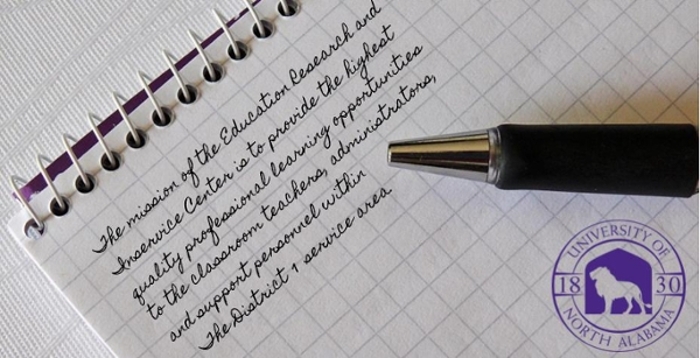 The mission of the Education Research and
Inservice Center is to provide the highest
quality professional learning opportunities
to the classroom teachers, administrators,
and support personnel within
The District 1 service area
UNIVERSITY OF
18 30
NORTH ALABAMA